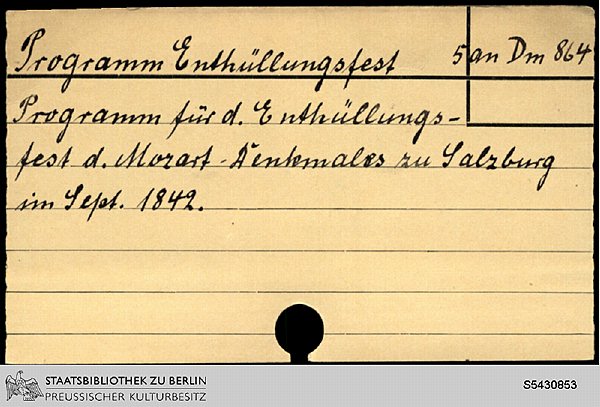 Programm Enthüllungsfest 5 an Dm 864
Programm für d. Enthüllungs-
fest d. Mozart-Denkmales zu Salzburg
im Sept. 1842.
STAATSBIBLIOTHEK ZU BERLIN
PREUSSISCHER KULTURBESITZ
S5430853